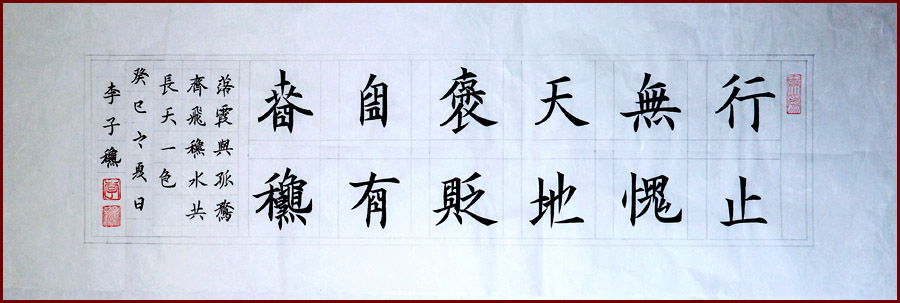 行止
無愧
天地
褒貶
自有
春龝
落霞與孤鶩
齊飛龝水共
長天一色
癸巳之夏日
李子龝